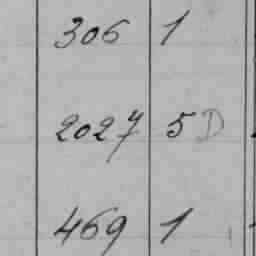 306 1
2027 5 D
469 1